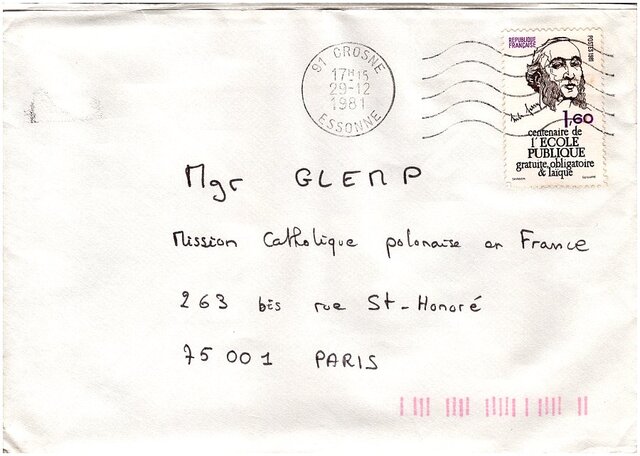 91 CROSNE
17H15
29-12
1981
ESSONNE
REPUBLIQUE
FRANÇAISE
POSTES 1981
1,60
centenaire de
l'ECOLE
PUBLIQUE
gratuite, obligatoire
& laïque
Mgr GLEMP
Mission Catholique polonaise en France
263 bis rue St-Honoré
75 001 PARIS